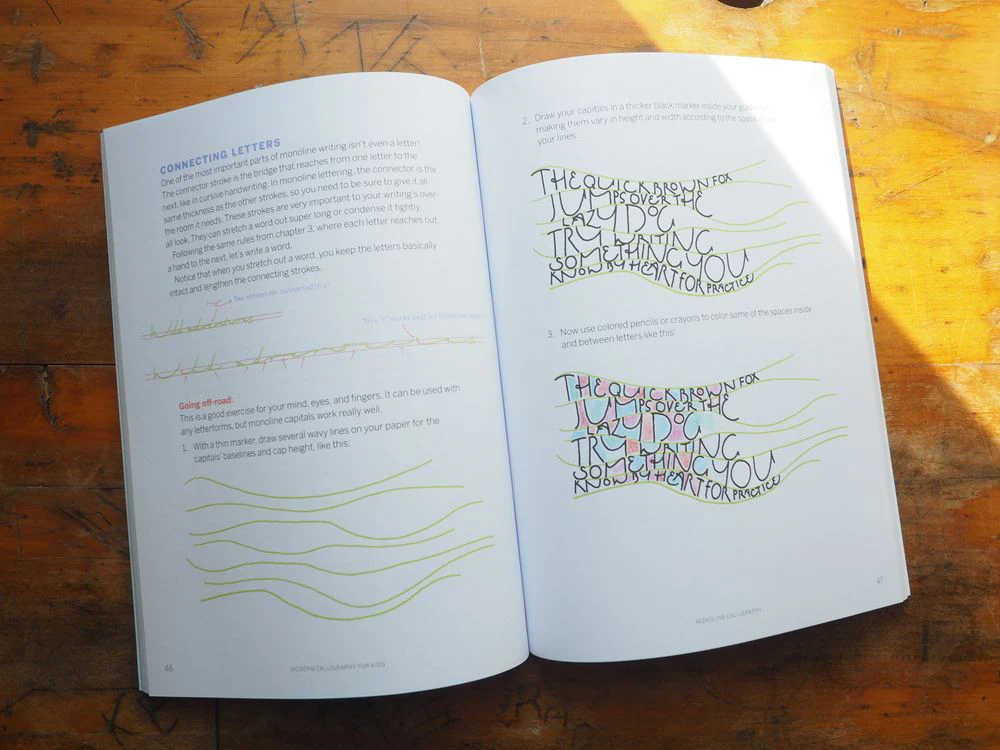 CONNECTING LETTERS
One of the most important parts of monoline writing isn't even a letter!
The connector stroke is the bridge that reaches from one letter to the
next, like in cursive handwriting. In monoline lettering, the connector is the
same thickness as the other strokes, so you need to be sure to give it all
the room it needs. These strokes are very important to your writing's over-
all look. They can stretch a word out super long or condense it tightly.
Following the same rules from chapter 3, where each letter reaches out
a hand to the next, let's write a word.
Notice that when you stretch out a word, you keep the letters basically
intact and lengthen the connecting strokes.
Two strokes for connected
This "r" works best for connected
wild adventures
wild adventures
Going off-road:
This is a good exercise for your mind, eyes, and fingers. It can be used with
any letterforms, but monoline capitals work really well.
1. With a thin marker, draw several wavy lines on your paper for the
capitals' baselines and cap height, like this:
46
MODERN CALLIGRAPHY FOR KIDS
2. Draw your capitals in a thicker black marker inside your
making them vary in height and width according to the space
your lines.
THE QUICK BROWN FOX
JUMPS OVER THE
LAZY DOG
TRY WRITING
SOMETHING YOU
KNOW BY HEART FOR PRACTICE
3. Now use colored pencils or crayons to color some of the spaces inside
and between letters like this:
THE QUICK BROWN FOX
JUMPS OVER THE
LAZY DOG
TRY WRITING
SOMETHING YOU
KNOW BY HEART FOR PRACTICE
MONOLINE CALLIGRAPHY
47